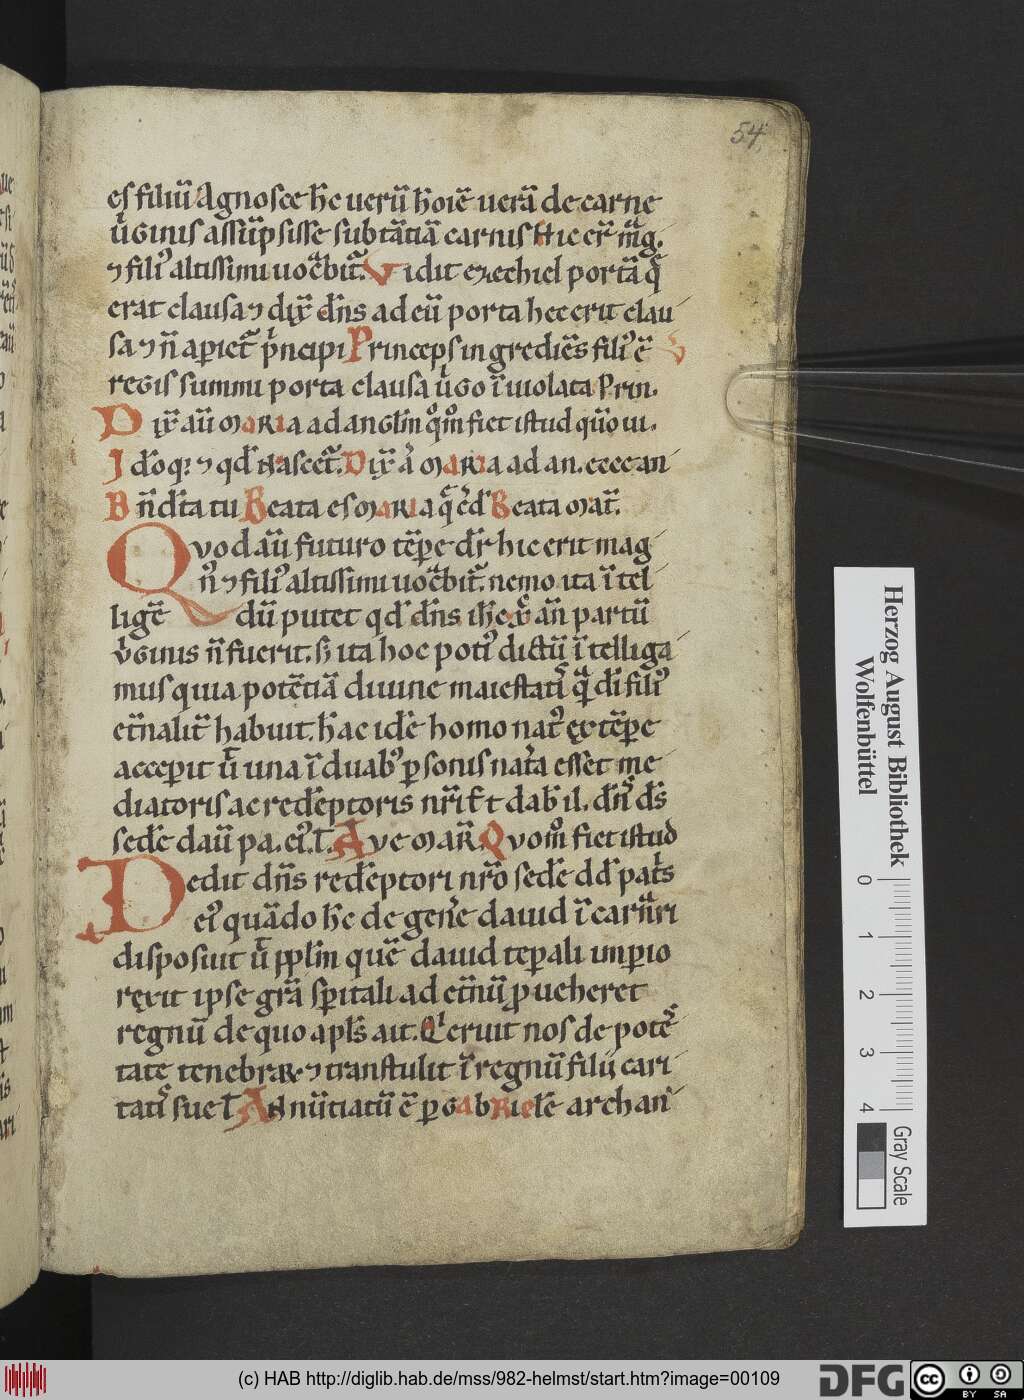 54
es filiū Agnosce h̄c uerū hoiē uerā de carne
ūginis assūpsisse subtātiā carnis Hic er̄ mag.
⁊ fili᷒ altissimi uocabit᷑. Vidit ezechiel portā q̄
erat clausa ⁊ dix̄ dn̄s ad eū porta hec erit clau
sa ⁊ n̄ apiet᷑ pͥncipi Princeps ingrediēs fili᷒ ē V
regis summi porta clausa ūgo īuiolata Prin.
Dix̄ aū maria ad anglm̄ qͦmͦ fiet istud qm̄ ui.
Ideoq; ⁊ qd̄ nascet᷑. Dix̄ a maria ad an. ecce an
Bn̄dc̄ta tu Beata es maria q̄ c᷑d̄ Beata mat᷑.
Qvod aū futuro tēpe dr̄ hic erit mag
n᷒ ⁊ fili᷒ altissimi uocabit᷑. nemo ita ītel
ligē dū putet qd̄ dn̄s ih̄c xp̄c an̄ partū
v̄ginis n̄ fuerit. s; ita hoc poti᷒ dictū ītelliga
mus quia potētiā diuine maiestatis quā dī fili᷒
et̄nalit᷑ habuit. hāc idē homo nat᷒ ex tēpe
accepit ūt una ī duab᷒ psonis nat᷑a esset me
diatoris ac redēptoris nr̄i et dab il. dn̄s ds̄
sedē dauid pa. ei᷒. L. Ave mar̄. Qvomͦ fiet istud
Dedit dn̄s redēptori nr̄o sedē dd̄ pat᷑s
ei᷒ quādo h̄c de gen᷑e dauid īcarnari
disposuit ūt pplm̄ quē dauid tepali impio
rexit ipse gr̄a spitali ad et̄nū p̱ueheret
regnū de quo apls̄ ait. Qͥ eruit nos de potes
tate tenebrar⁊ ⁊ transtulit ī regnū filii cari
tatis sue L Annūtiatū ē p gabrielē archan
Herzog August Bibliothek
Wolfenbüttel
0 1 2 3 4
Gray Scale
(c) HAB http://diglib.hab.de/mss/982-helmst/start.htm?image=00109
DFG
cc BY SA